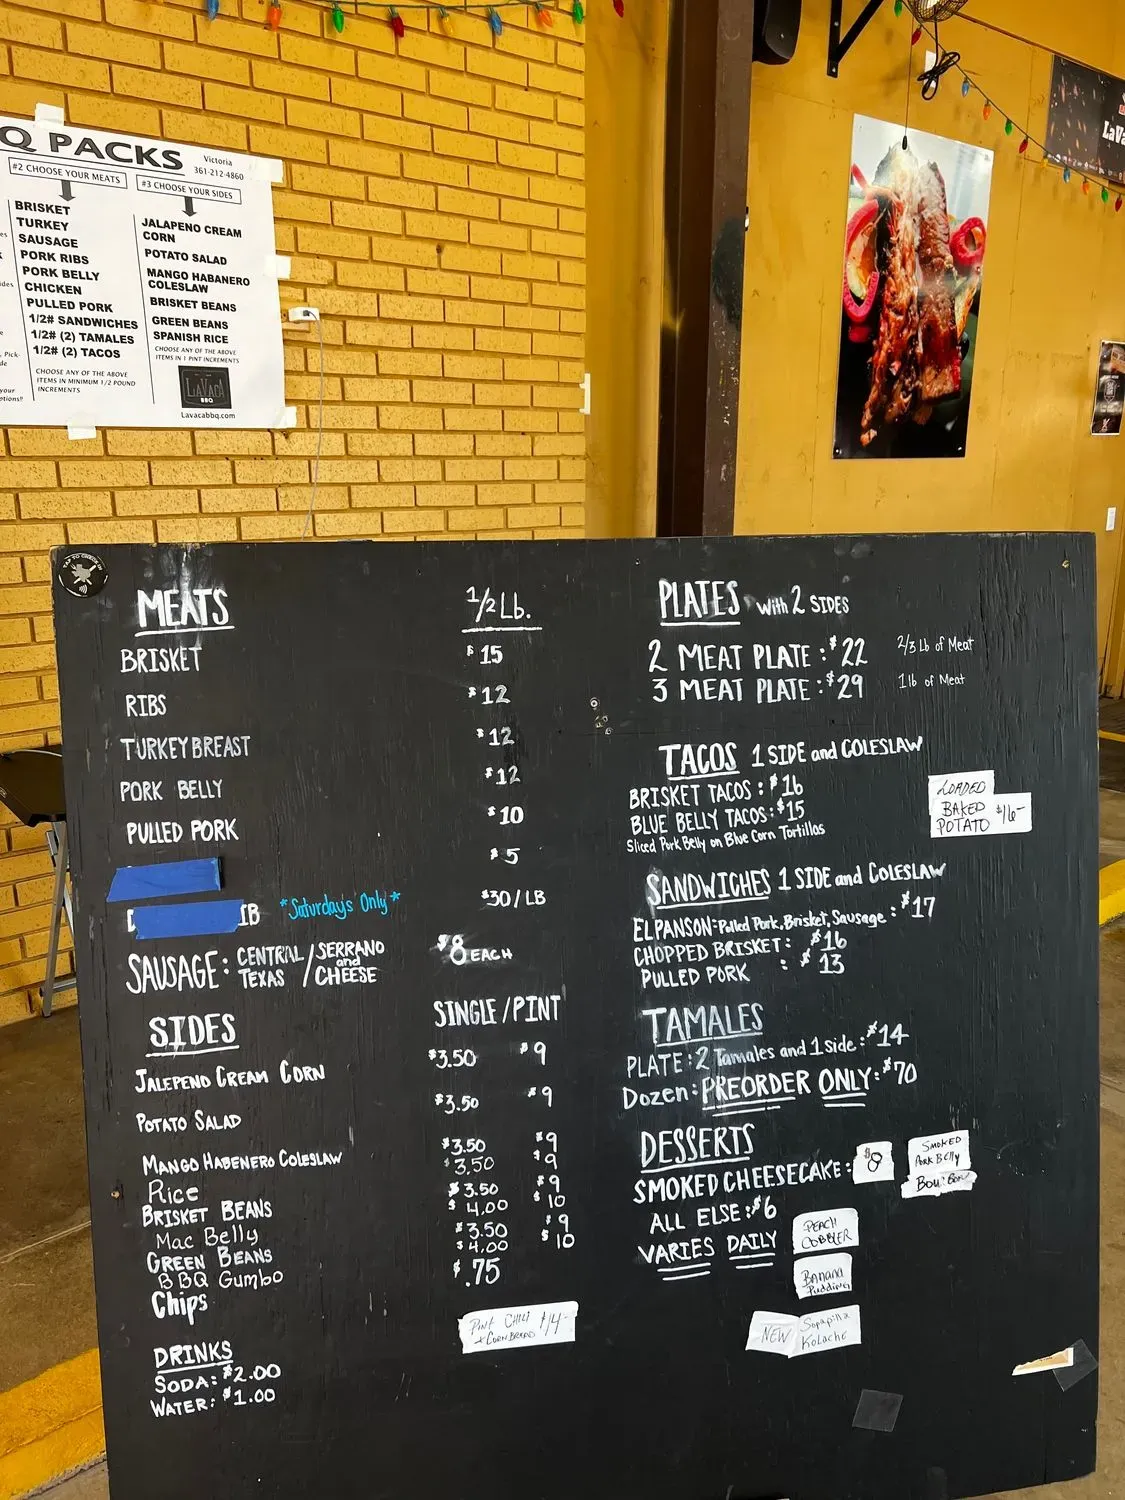 Q PACKS
Victoria
361-212-4860
#2 CHOOSE YOUR MEATS
BRISKET
TURKEY
SAUSAGE
PORK RIBS
PORK BELLY
CHICKEN
PULLED PORK
1/2# SANDWICHES
1/2# (2) TAMALES
1/2# (2) TACOS
CHOOSE ANY OF THE ABOVE
ITEMS IN MINIMUM 1/2 POUND
INCREMENTS
#3 CHOOSE YOUR SIDES
JALAPENO CREAM
CORN
POTATO SALAD
MANGO HABANERO
COLESLAW
BRISKET BEANS
GREEN BEANS
SPANISH RICE
CHOOSE ANY OF THE ABOVE
ITEMS IN 1 PINT INCREMENTS
LAVACA
BBQ
Lavacabbq.com
LaVa
MEATS 1/2 Lb.
BRISKET $15
RIBS $12
TURKEY BREAST $12
PORK BELLY $12
PULLED PORK $10
$5
IB *Saturdays Only* $30/LB
SAUSAGE: CENTRAL TEXAS / SERRANO and CHEESE $8 EACH
SIDES SINGLE/PINT
JALEPENO CREAM CORN $3.50 $9
POTATO SALAD $3.50 $9
MANGO HABENERO COLESLAW $3.50 $9
Rice $3.50 $9
BRISKET BEANS $3.50 $9
Mac Belly $4.00 $10
GREEN BEANS $3.50 $9
BBQ Gumbo $4.00 $10
Chips $.75
PINT CHILI
+ CORNBREAD $14-
DRINKS
SODA: $2.00
WATER: $1.00
PLATES with 2 SIDES
2 MEAT PLATE: $22 2/3 Lb of Meat
3 MEAT PLATE: $29 1 lb of Meat
TACOS 1 SIDE and COLESLAW
BRISKET TACOS: $16
BLUE BELLY TACOS: $15
Sliced Pork Belly on Blue Corn Tortillas
LOADED
BAKED
POTATO $16-
SANDWICHES 1 SIDE and COLESLAW
ELPANSON: Pulled Pork, Brisket, Sausage: $17
CHOPPED BRISKET: $16
PULLED PORK : $13
TAMALES
PLATE: 2 Tamales and 1 side: $14
Dozen: PREORDER ONLY: $70
DESSERTS
SMOKED CHEESECAKE: $8
SMOKED
PORK BELLY
ALL ELSE: $6
VARIES DAILY
PEACH
COBBLER
BANANA
Pudding
NEW Sopapilla
Kolache